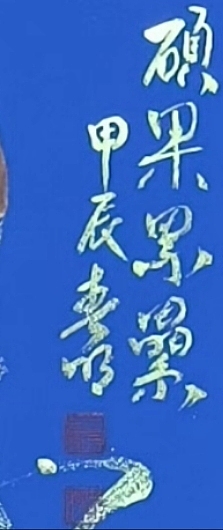 硕果累累
甲辰春明